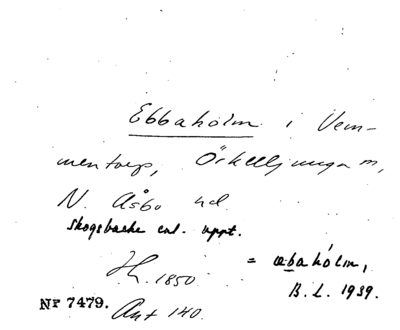 Ebbaholm i Vem-
mentorp, Örkelljunga sn,
N. Åsbo hd.
skogsbacke enl. uppt.
Jh. 1850
= æbahólm,
B. L. 1939.
Nr 7479.
Ant 140.